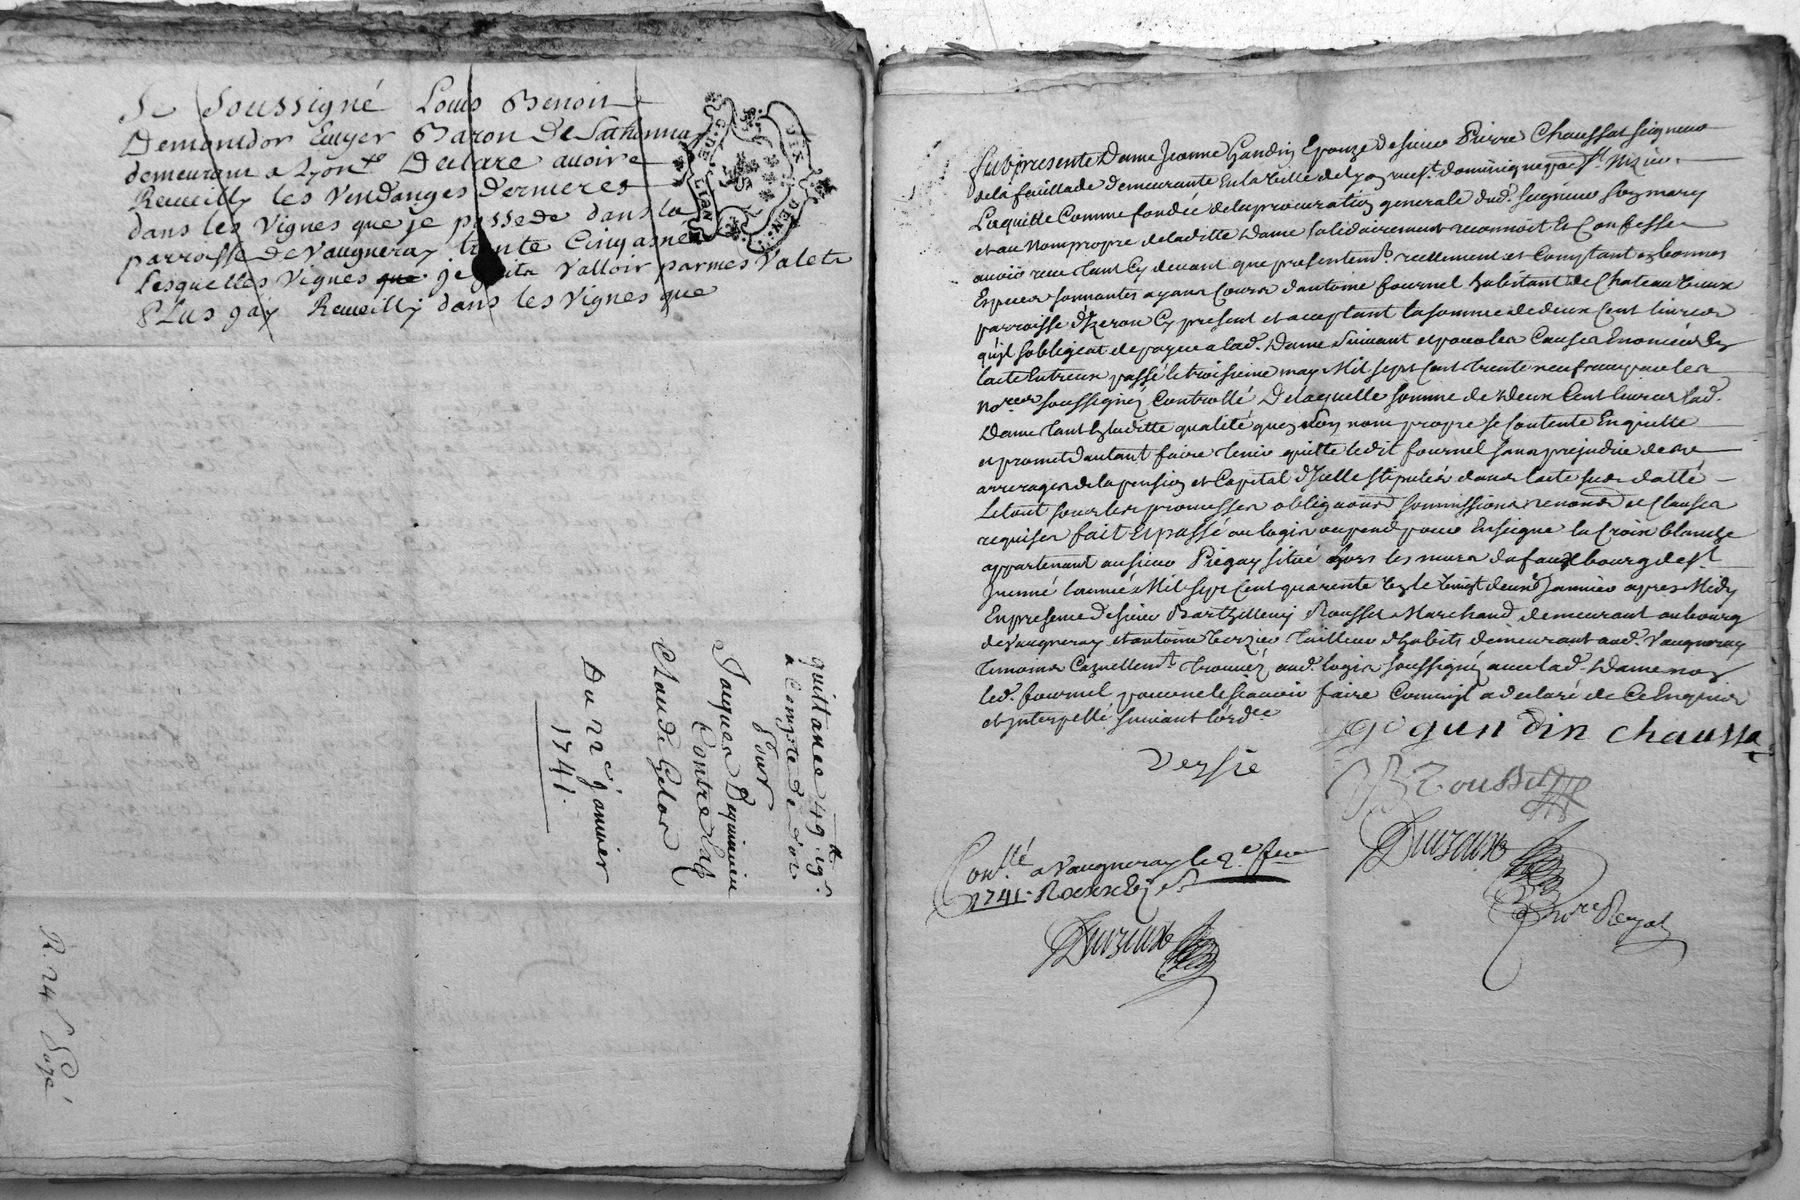 Je Soussigné Louis Benoit
Demontdor Ecuyer Baron De Sathonnay
demeurant a Lyon Declare avoire
Recueilly les Vendanges Dernieres
dans les Vignes que je possede dans la
parroisse de Vaugneray trente Cinq asnée
Lesquelles Vignes que je faits Valloir par mes Valets
Plus j'ay Recueilly dans les Vignes que
G. DE LIAN
DIX DEN.
quittance 49
a compte de
Pour
Jacques
Contre
Claude
Du 22e janvier
1741.
R. 24 Payé
Fut presente Dame Jeanne Gandin Epouze de sieur Pierre Chaussat seigneur
de la feuillade demeurante en la Ville de Lyon rue st. dominique
Laquelle Comme fondée de la procuration generale dud. seigneur son mary
et au nom propre de laditte Dame solidairement reconnoit et Confesse
avoir receu tant Cy devant que presentemt. reellement et Comptant en bonnes
Especes sonnantes ayans Cours d'antoine fournel habitant de Chateauvieux
parroisse d'Yzeron Cy present et acceptant la somme de deux Cent livres
qu'il s'obligeat de payer a lad. Dame Suivant et pour les Causes Enoncées En
l'acte Entreux passé le troisieme may Mil sept Cent trente neuf receu par les
nores soussignés Controllé De laquelle somme de Deux Cent livres lad.
Dame tant En laditte qualité qu'en son nom propre se Contente En quitte
et promet d'autant faire tenir quitte ledit fournel sans prejudice des
arrerages de la pension et Capital d'Icelle stipulés dans l'acte sus datté
Le tout sous les promesses obligations soumissions renonds. et Clauses
requises fait Et passé au logis ou pend pour Enseigne la Croix blanche
appartenant au sieur Piegay situé hors les murs du fauxbourg de st.
Jrenné l'année Mil sept Cent quarente Un le Vingt deux Janvier apres Midy
En presence de sieur Barthellemy Rousset Marchand demeurant au bourg
de Vaugneray et antoine Verzier Tailleur d'habits demeurant aud. Vaugneray
Temoins Casuellemt. trouvez aud. logis soussignés avec lad. Dame non
led. fournel pour ne le sçavoir faire Comm'il a declaré de Ce Enquis
et Interpellé suivant l'ordce
gandin chaussa
Versie
B Rousset
nore Royal
Conllé a Vaugneray le 2e fevr
1741